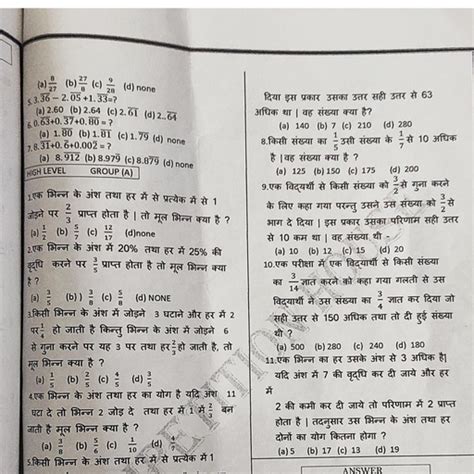 (a) 8/27 (b) 27/8 (c) 9/28 (d) none
5. 3.36 – 2.05 + 1.33 = ?
(a) 2.60 (b) 2.64 (c) 2.61 (d) 2..64
6. 0.63+0.37+0.80 = ?
(a) 1.80 (b) 1.81 (c) 1.79 (d) none
7. 8.31+0.6+0.002 = ?
(a) 8.912 (b) 8.979 (c) 8.879 (d) none
HIGH LEVEL GROUP (A)
1.एक भिन्न के अंश तथा हर में से प्रत्येक में से 1
जोड़ने पर 2/3 प्राप्त होता है | तो मूल भिन्न क्या है ?
(a) 1/2 (b) 5/7 (c) 12/17 (d)none
2.एक भिन्न के अंश में 20% तथा हर में 25% की
वृद्धि करने पर 3/5 प्राप्त होता है तो मूल भिन्न क्या है ?
(a) 3/5 (b) ) 3/8 (c) 5/8 (d) NONE
3.किसी भिन्न के अंश में जोड़ने 3 घटाने और हर में 2
पर 1/3 हो जाती है किन्तु भिन्न के अंश में जोड़ने 6
से गुना करने पर यह 3 पर तथा हर 2/3 हो जाती है, तो
मूल भिन्न क्या है ?
(a) 1/5 (b) 2/5 (c) 4/5 (d) 3/5
4.एक भिन्न के अंश तथा हर का योग है यदि अंश 11
घटा दे तो भिन्न 2 जोड़ दे तथा हर में 1 में 2/3 बन
जाती है मूल भिन्न क्या है ?
(a) 3/8 (b) 5/6 (c) 1/10 (d)
5.किसी भिन्न के अंश तथा हर में से प्रत्येक में 1
दिया इस प्रकार उसका उत्तर सही उत्तर से 63
अधिक था | वह संख्या क्या है?
(a) 140 (b) 7 (c) 210 (d) 280
8.किसी संख्या का 1/5 उसी संख्या के 1/7 से 10 अधिक
है | वह संख्या क्या है ?
(a) 125 (b) 150 (c) 175 (d) 200
9.एक विद्यर्थी से किसी संख्या को 3/2 से गुना करने
के लिए कहा गया परन्तु उसने उस संख्या को 3/2 से
भाग दे दिया | इस प्रकार उसका परिणाम सही उत्तर
से 10 कम था | वह संख्या थी -
(a) 10 (b) 12 (c) 15 (d) 20
10.एक परीक्षा में एक विद्यार्थी से किसी संख्या
का 3/14 ज्ञात करने को कहा गया गलती से उस
विद्यार्थी ने उस संख्या का 3/4 ज्ञात कर दिया जो
सही उत्तर से 150 अधिक था तो दी हुई संख्या
थी ?
(a) 500 (b) 280 (c) 240 (d) 180
11.एक भिन्न का हर उसके अंश से 3 अधिक है|
यदि अंश में 7 की वृद्धि कर दी जाये और हर
में
2 की कमी कर दी जाये तो परिणाम में 2 प्राप्त
होता है | तदनुसार उस भिन्न के अंश तथा हर
दोनों का योग कितना होगा ?
(a) 5 (b) 17 (c) 13 (d) 19
ANSWER